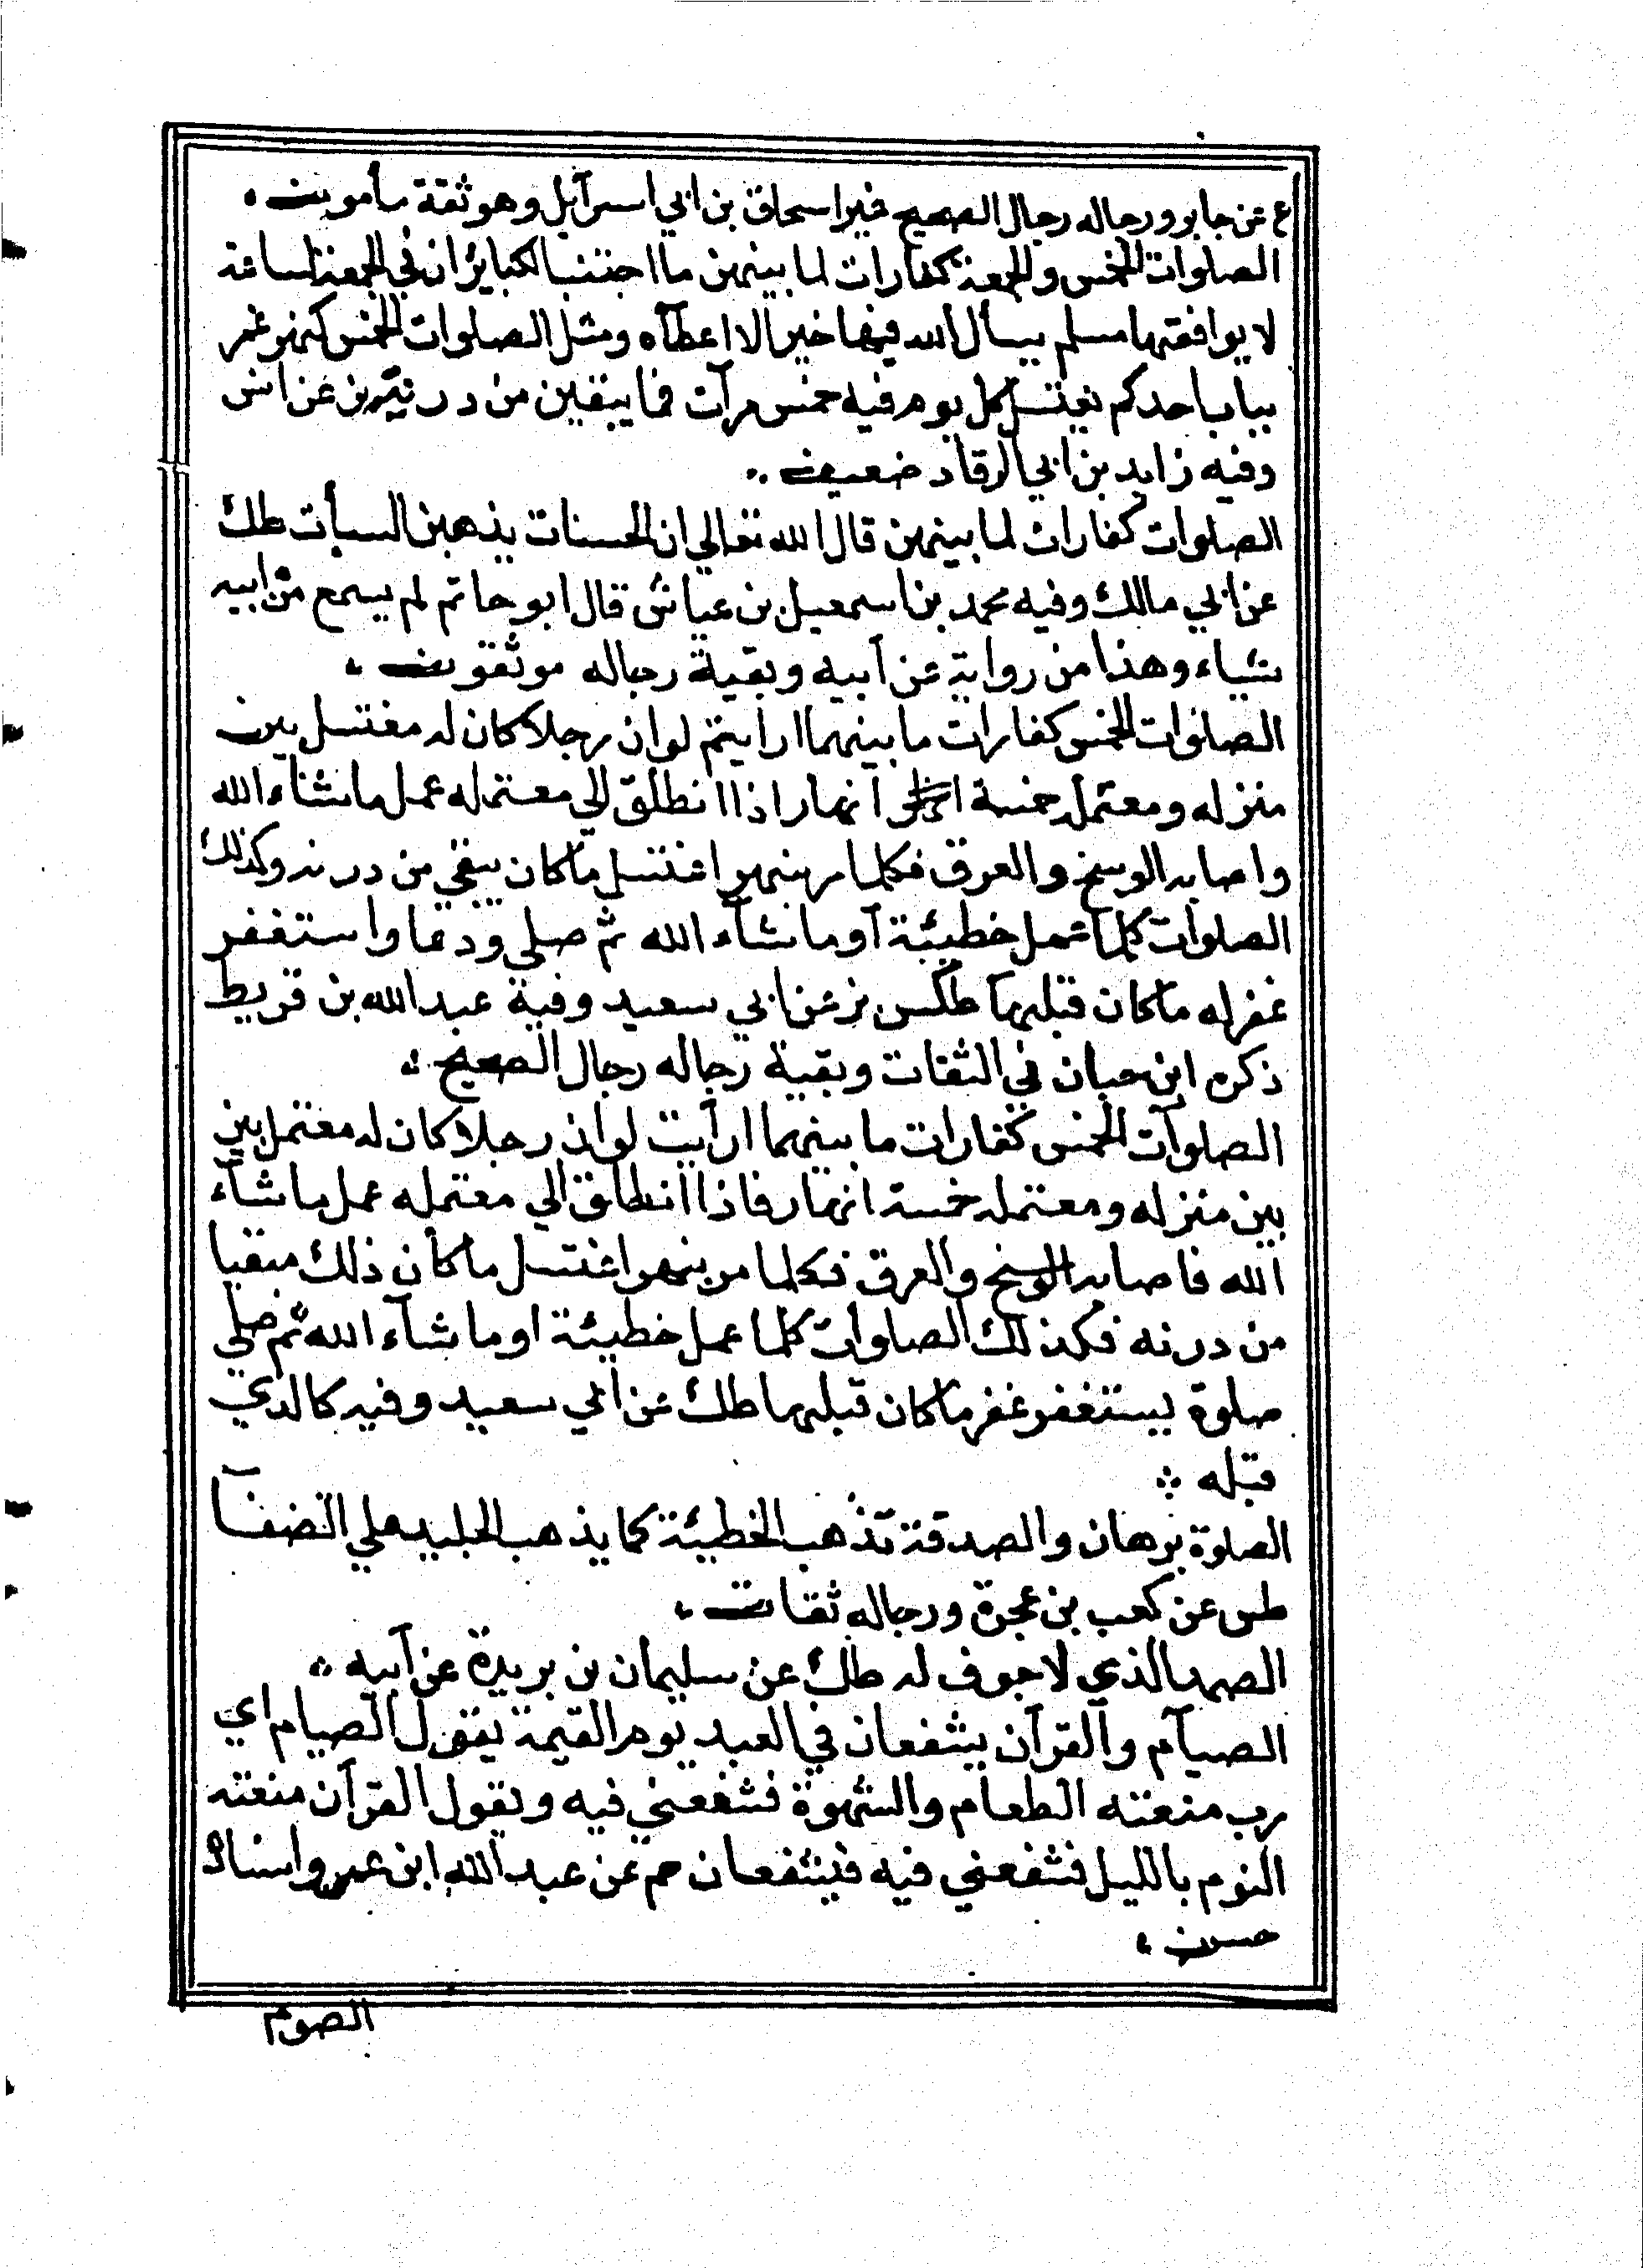 ع عن جابر ورجاله رجال الصحيح غير اسحاق بن ابي اسرآيل وهو ثقة مأمون
الصلوات الخمس والجمعة كفارات لما بينهن ما اجتنب الكبائر ان في الجمعة لساعة
لا يوافقها مسلم يسأل الله فيها خيرا الا اعطآه ومثل الصلوات الخمس كنهر غمر
بباب احدكم يغتسل كل يوم فيه خمس مرآت فما يبقين من درنه بز عن انس
وفيه زايد بن ابي الرقاد ضعيف
الصلوات كفارات لما بينهن قال الله تعالي ان الحسنات يذهبن السيأت طك
عن ابي مالك وفيه محمد بن اسمعيل بن عياش قال ابو حاتم لم يسمع من ابيه
شياء وهذا من رواية عن أبيه وبقية رجاله موثقون
الصلوات الخمس كفارات ما بينهما ارايتم لو ان رجلا كان له مغتسل بين
منزله ومعتمله خمسة انهار اذا انطلق الي معتمله عمل ما شاء الله
واصابه الوسخ والعرق فكلما مر بنهر اغتسل ما كان يبقي من درنه وكذلك
الصلوات كلما عمل خطيئة أو ما شآء الله ثم صلي ودعا واستغفر
غفر له ما كان قبلها طكس بز عن ابي سعيد وفية عبد الله بن قريط
ذكره ابن حبان في الثقات وبقية رجاله رجال الصحيح
الصلوآت الخمس كفارات ما بينهما ارأيت لو ان رجلا كان له معتمل بين
بين منزله ومعتمله خمسة انهار فاذا انطلق الي معتمله عمل ما شآء
الله فاصابه الوسخ والعرق فكلما مر بنهر اغتسل ما كان ذلك مبقيا
من درنه فكذلك الصلوات كلما عمل خطيئة او ما شآء الله ثم صلي
صلوة يستغفر غفر ما كان قبلها طك عن ابي سعيد وفيه كالذي
قبله
الصلوة برهان والصدقة تذهب الخطيئة كما يذهب الجليد علي الضفآ
طس عن كعب بن عجرة ورجاله ثقات
الصمد الذي لا جوف له طك عن سليمان بن بريدة عن أبيه
الصيآم والقرآن يشفعان في العبد يوم القيمة يقول الصيام اي
رب منعته الطعام والشهوة فشفعني فيه ويقول القرآن منعته
النوم بالليل فشفعني فيه فيشفعان حم عن عبد الله ابن عمرو واسناده
حسن
الصوم